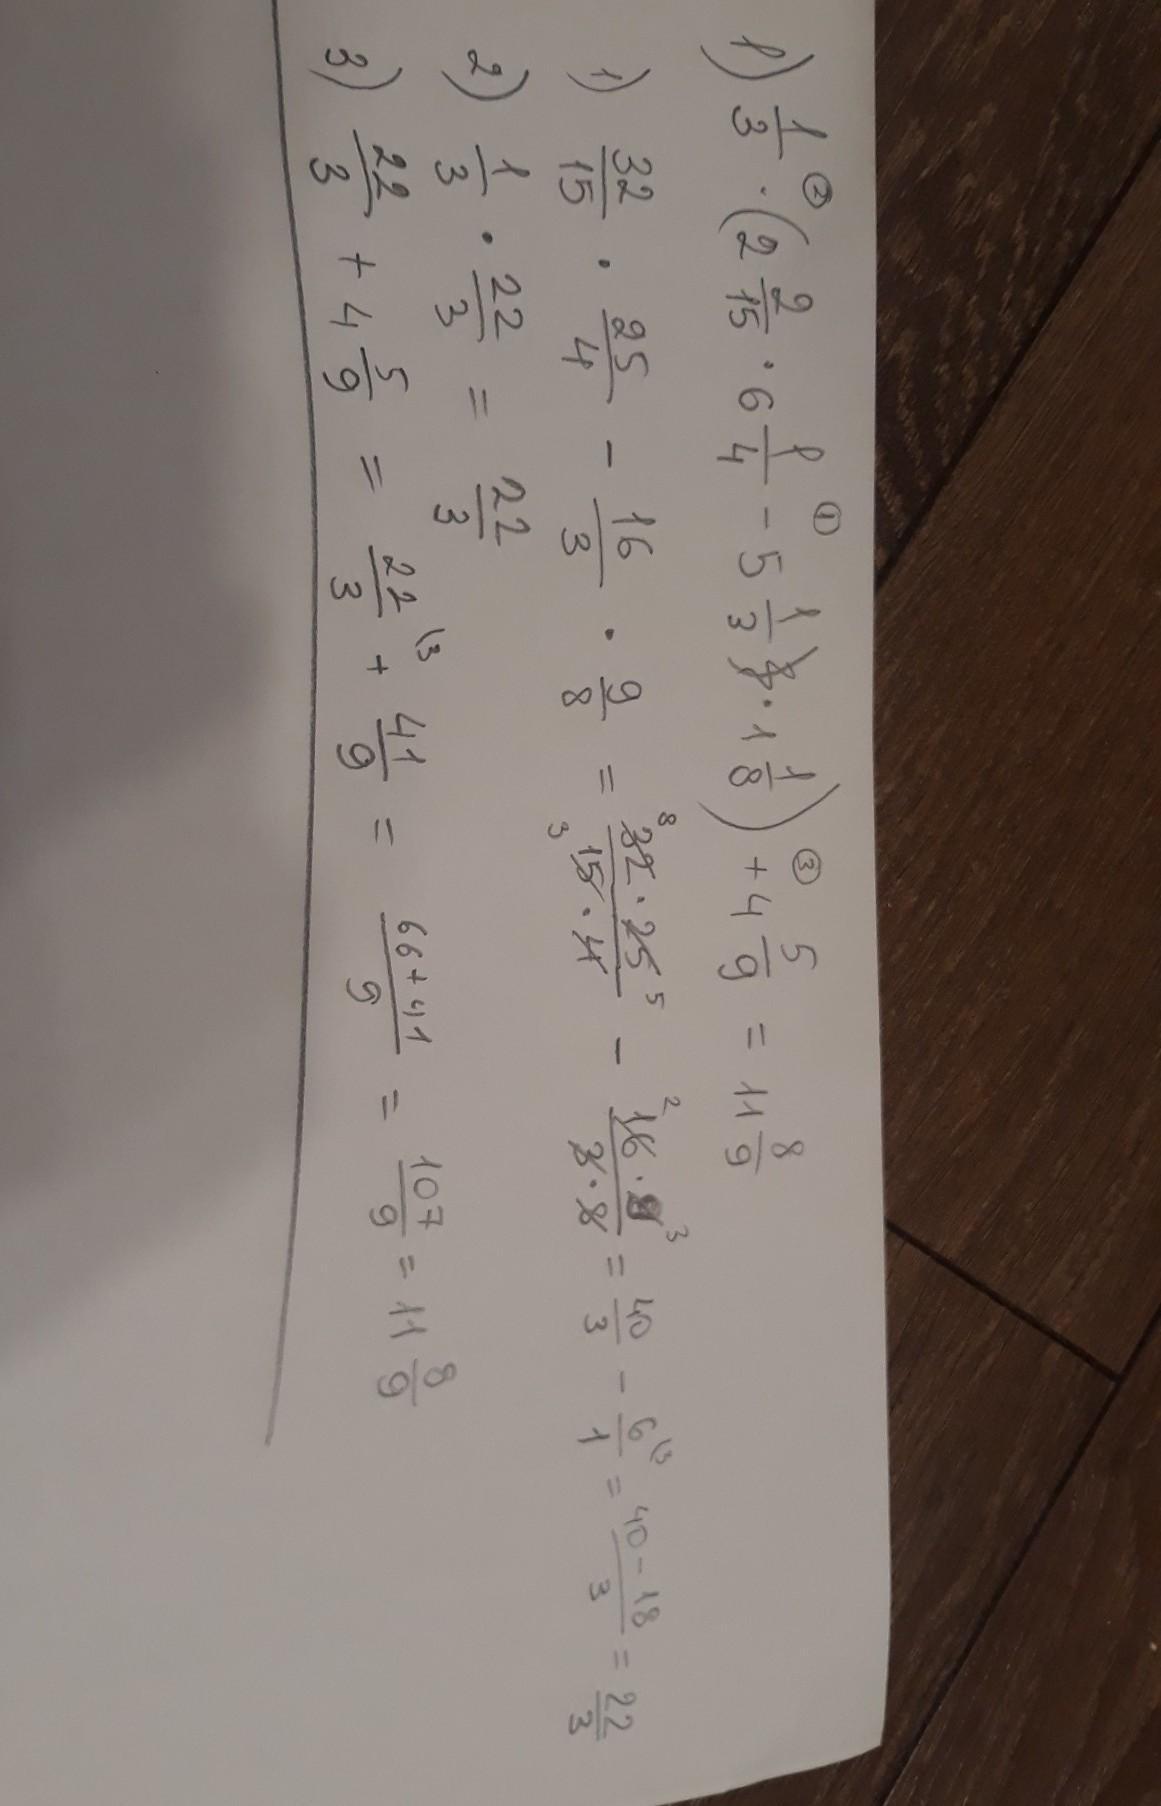 1) 1/3 · (2 2/15 · 6 1/4 - 5 1/3 · 1 1/8) + 4 5/9 = 11 8/9
② ① ③
1) 32/15 · 25/4 - 16/3 · 9/8 = 32 8 · 25 5 / 15 3 · 4 - 16 2 · 9 3 / 3 · 8 = 40/3 - 6/1 \3 = 40-18/3 = 22/3
2) 1/3 · 22/3 = 22/3
3) 22/3 + 4 5/9 = 22/3 \3 + 41/9 = 66+41/9 = 107/9 = 11 8/9